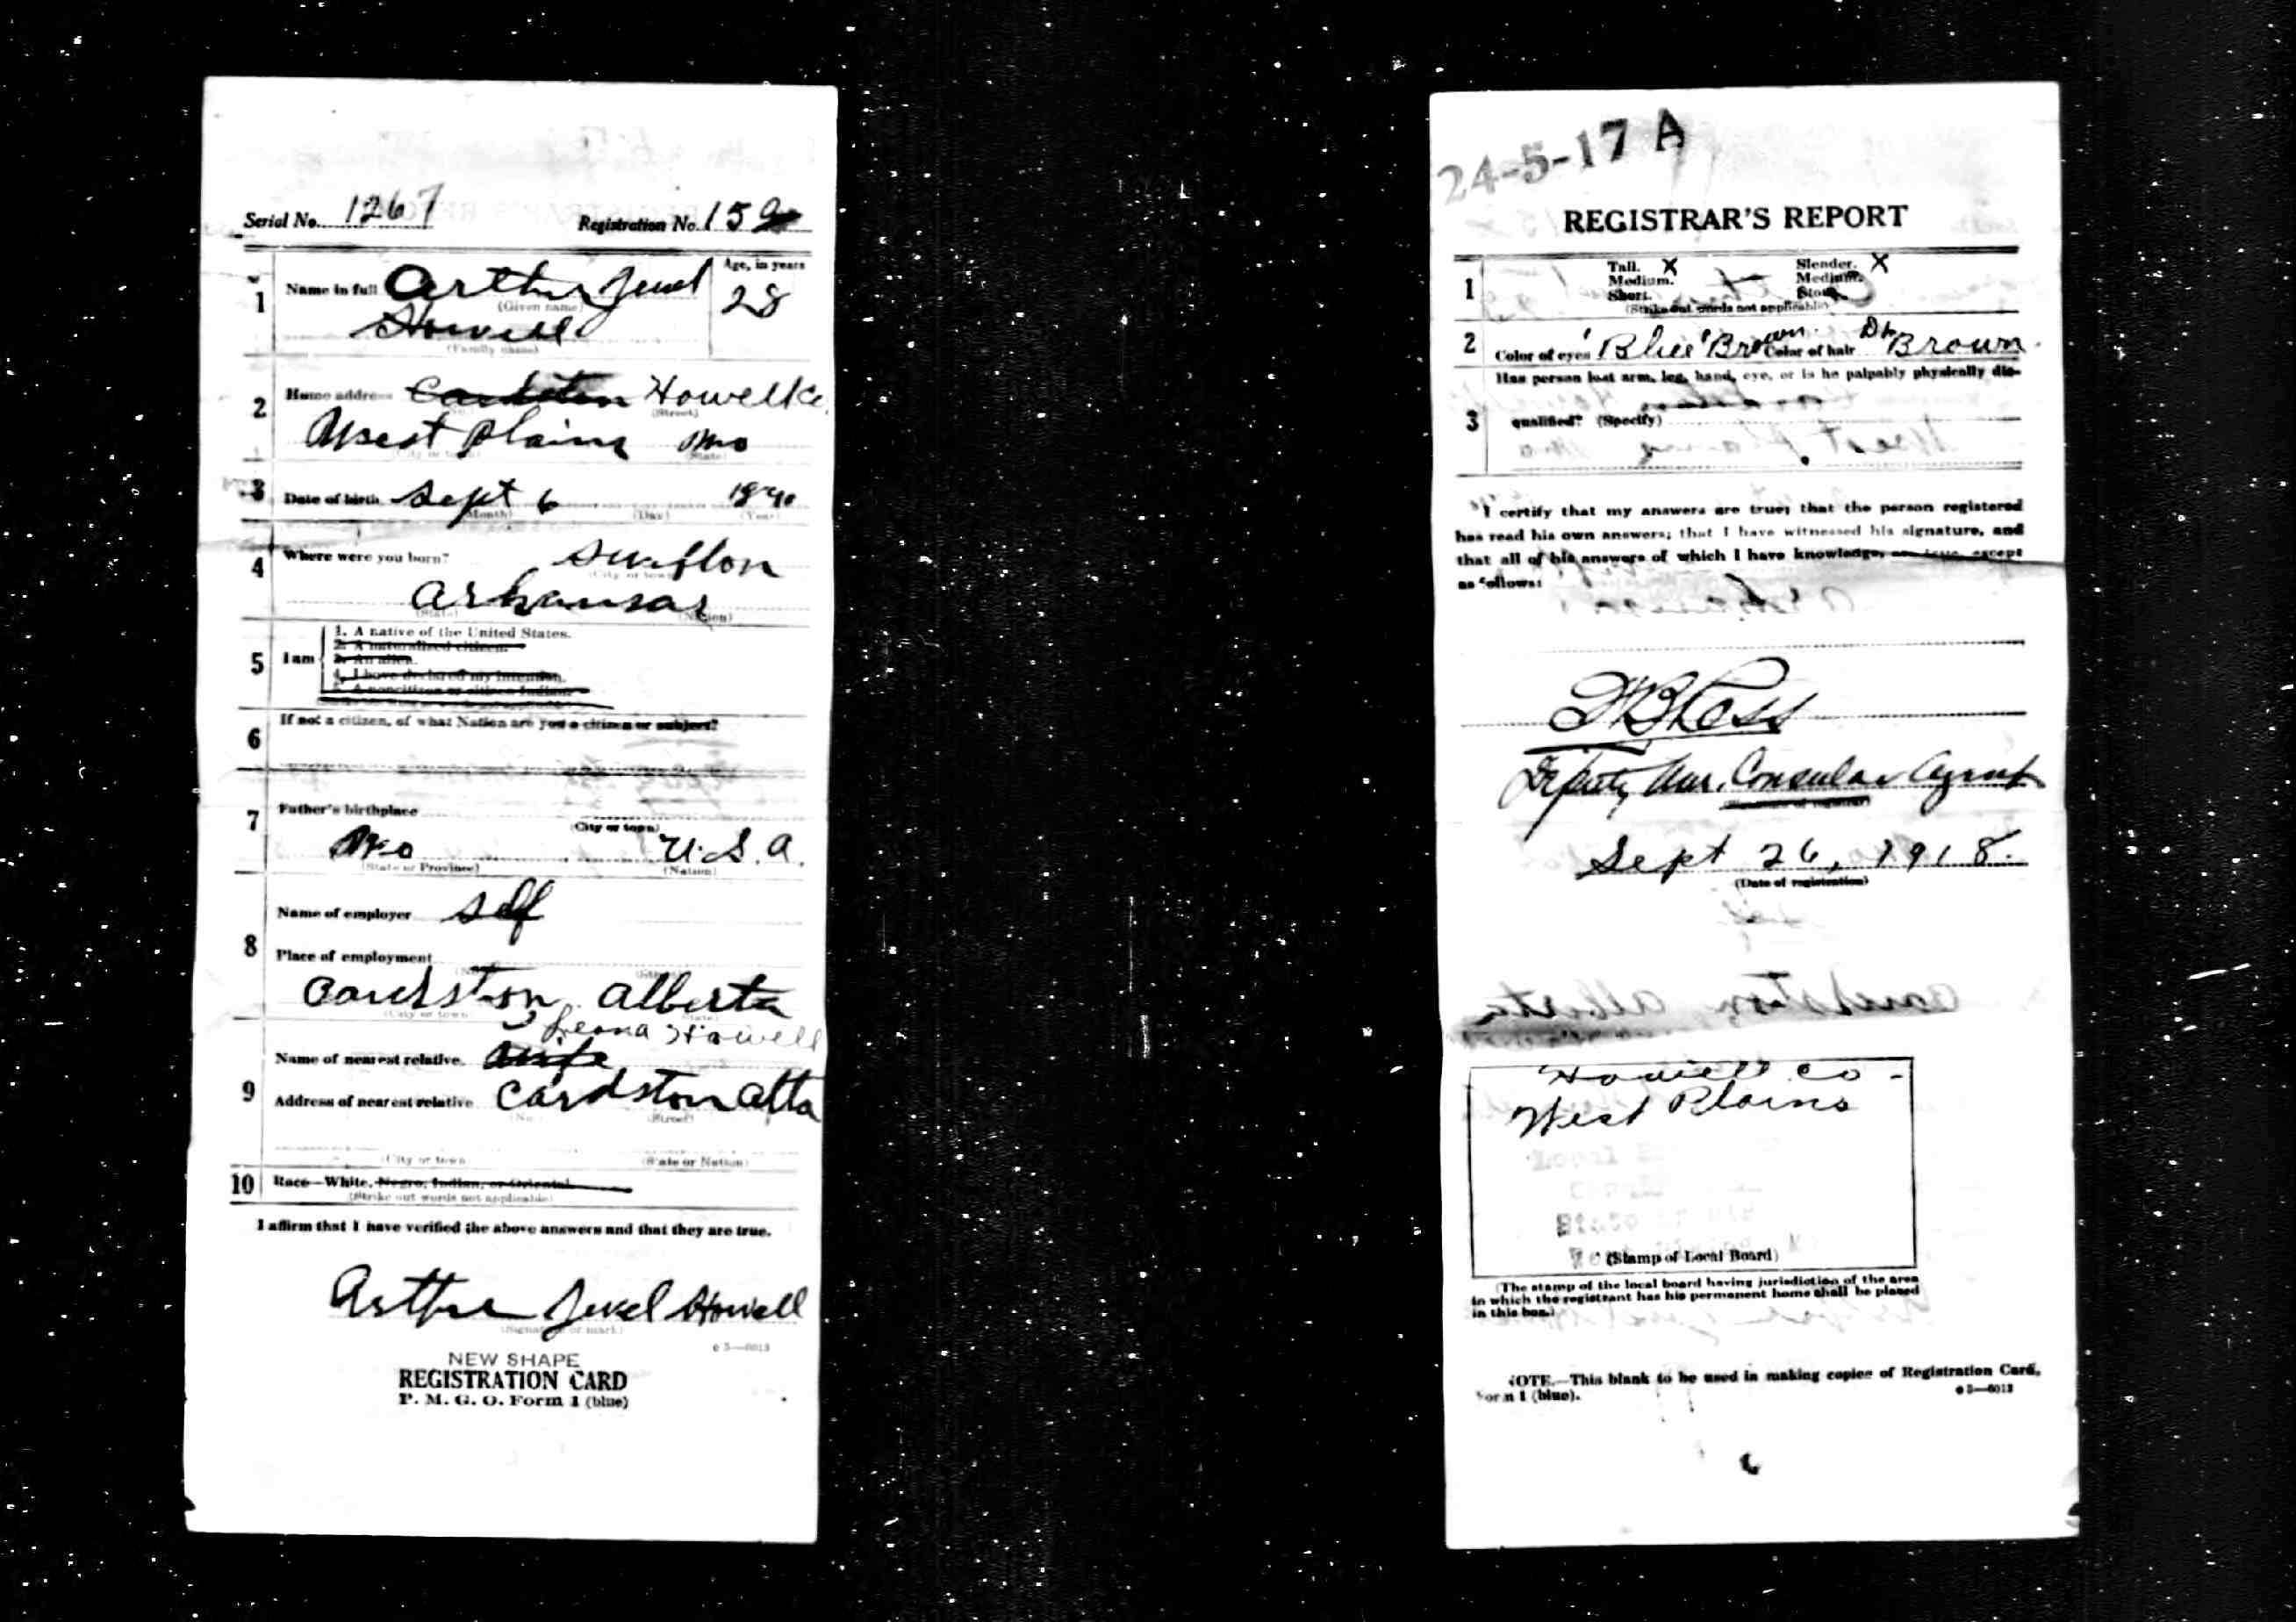 Serial No. 1267 Registration No. 159
1 Name in full Arthur Jewel Age, in years
(Given name) 28
Howell
(Family name)
2 Home address Cardston Howell Co.
(No.) (Street)
West Plains Mo
(City or town) (State)
3 Date of birth Sept 6 1890
(Month) (Day) (Year)
4 Where were you born? Swifton
(City or town)
Arkansas
(State) (Nation)
5 I am
1. A native of the United States.
2. A naturalized citizen.
3. An alien.
4. I have declared my intention.
5. A noncitizen or citizen Indian.
6 If not a citizen, of what Nation are you a citizen or subject?
7 Father's birthplace
(City or town)
Mo U.S.A.
(State or Province) (Nation)
8 Name of employer self
Place of employment
(No.) (Street)
Cardston, Alberta
(City or town) (State)
Leona Howell
9 Name of nearest relative Wife
Address of nearest relative Cardston Alta
(No.) (Street)
(City or town) (State or Nation)
10 Race—White, Negro, Indian, or Oriental
(Strike out words not applicable)
I affirm that I have verified the above answers and that they are true.
Arthur Jewel Howell
(Signature or mark)
c 3—6013
NEW SHAPE
REGISTRATION CARD
P. M. G. O. Form 1 (blue)
24-5-17 A
REGISTRAR'S REPORT
1 Tall. X Slender. X
Medium. Medium.
Short. Stout.
(Strike out words not applicable)
2 Color of eyes 'Blue' Brown. Color of hair Dk Brown.
3 Has person lost arm, leg, hand, eye, or is he palpably physically dis-
qualified? (Specify)
I certify that my answers are true; that the person registered
has read his own answers; that I have witnessed his signature, and
that all of his answers of which I have knowledge, are true, except
as follows:
Deputy Am. Consular Agent
(Signature of registrar)
Sept 26, 1918.
(Date of registration)
Howell Co -
West Plains
(Stamp of Local Board)
(The stamp of the local board having jurisdiction of the area
in which the registrant has his permanent home shall be placed
in this box.)
NOTE.—This blank to be used in making copies of Registration Card,
Form 1 (blue). c 3—6013